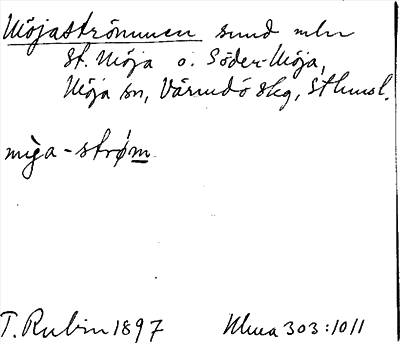 Möjaströmmen sund mln
St. Möja o. Söder-Möja,
Möja sn, Värmdö skg, Sthmsl.
mìga-strøm
T. Rubin 1897 Ulma 303:10 11